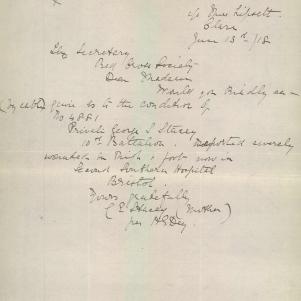 c/o Mrs Lipsett
Clare
June 13th /18
The Secretary
Red Cross Society
Dear Madam
Would you kindly en-
(by cable) quire as to the condition of
No 4881
Private George S Stacey
10th Battalion. Reported severely
wounded in thigh & foot now in
Second Southern Hospital
Bristol.
Yours gratefully
(E Stacey (Mother)
per